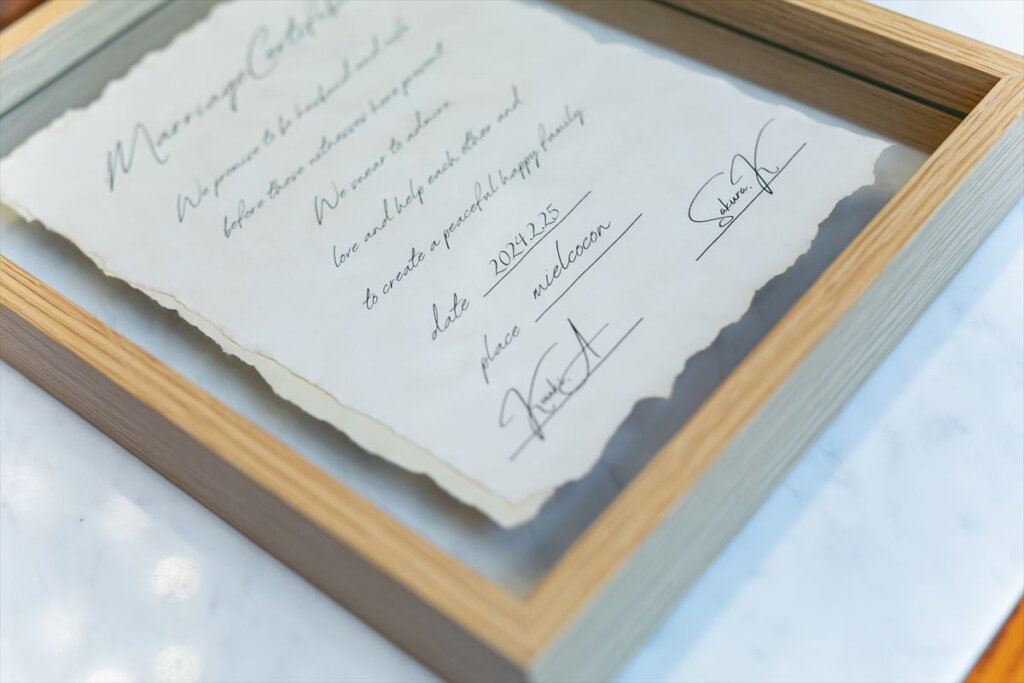 Marriage Certifi
We promise to be husband and wife
before these witnesses have present
We swear to admire,
love and help each other and
to create a peaceful happy family.
date 2024.2.25
place mielcocon
A
Sakura. K